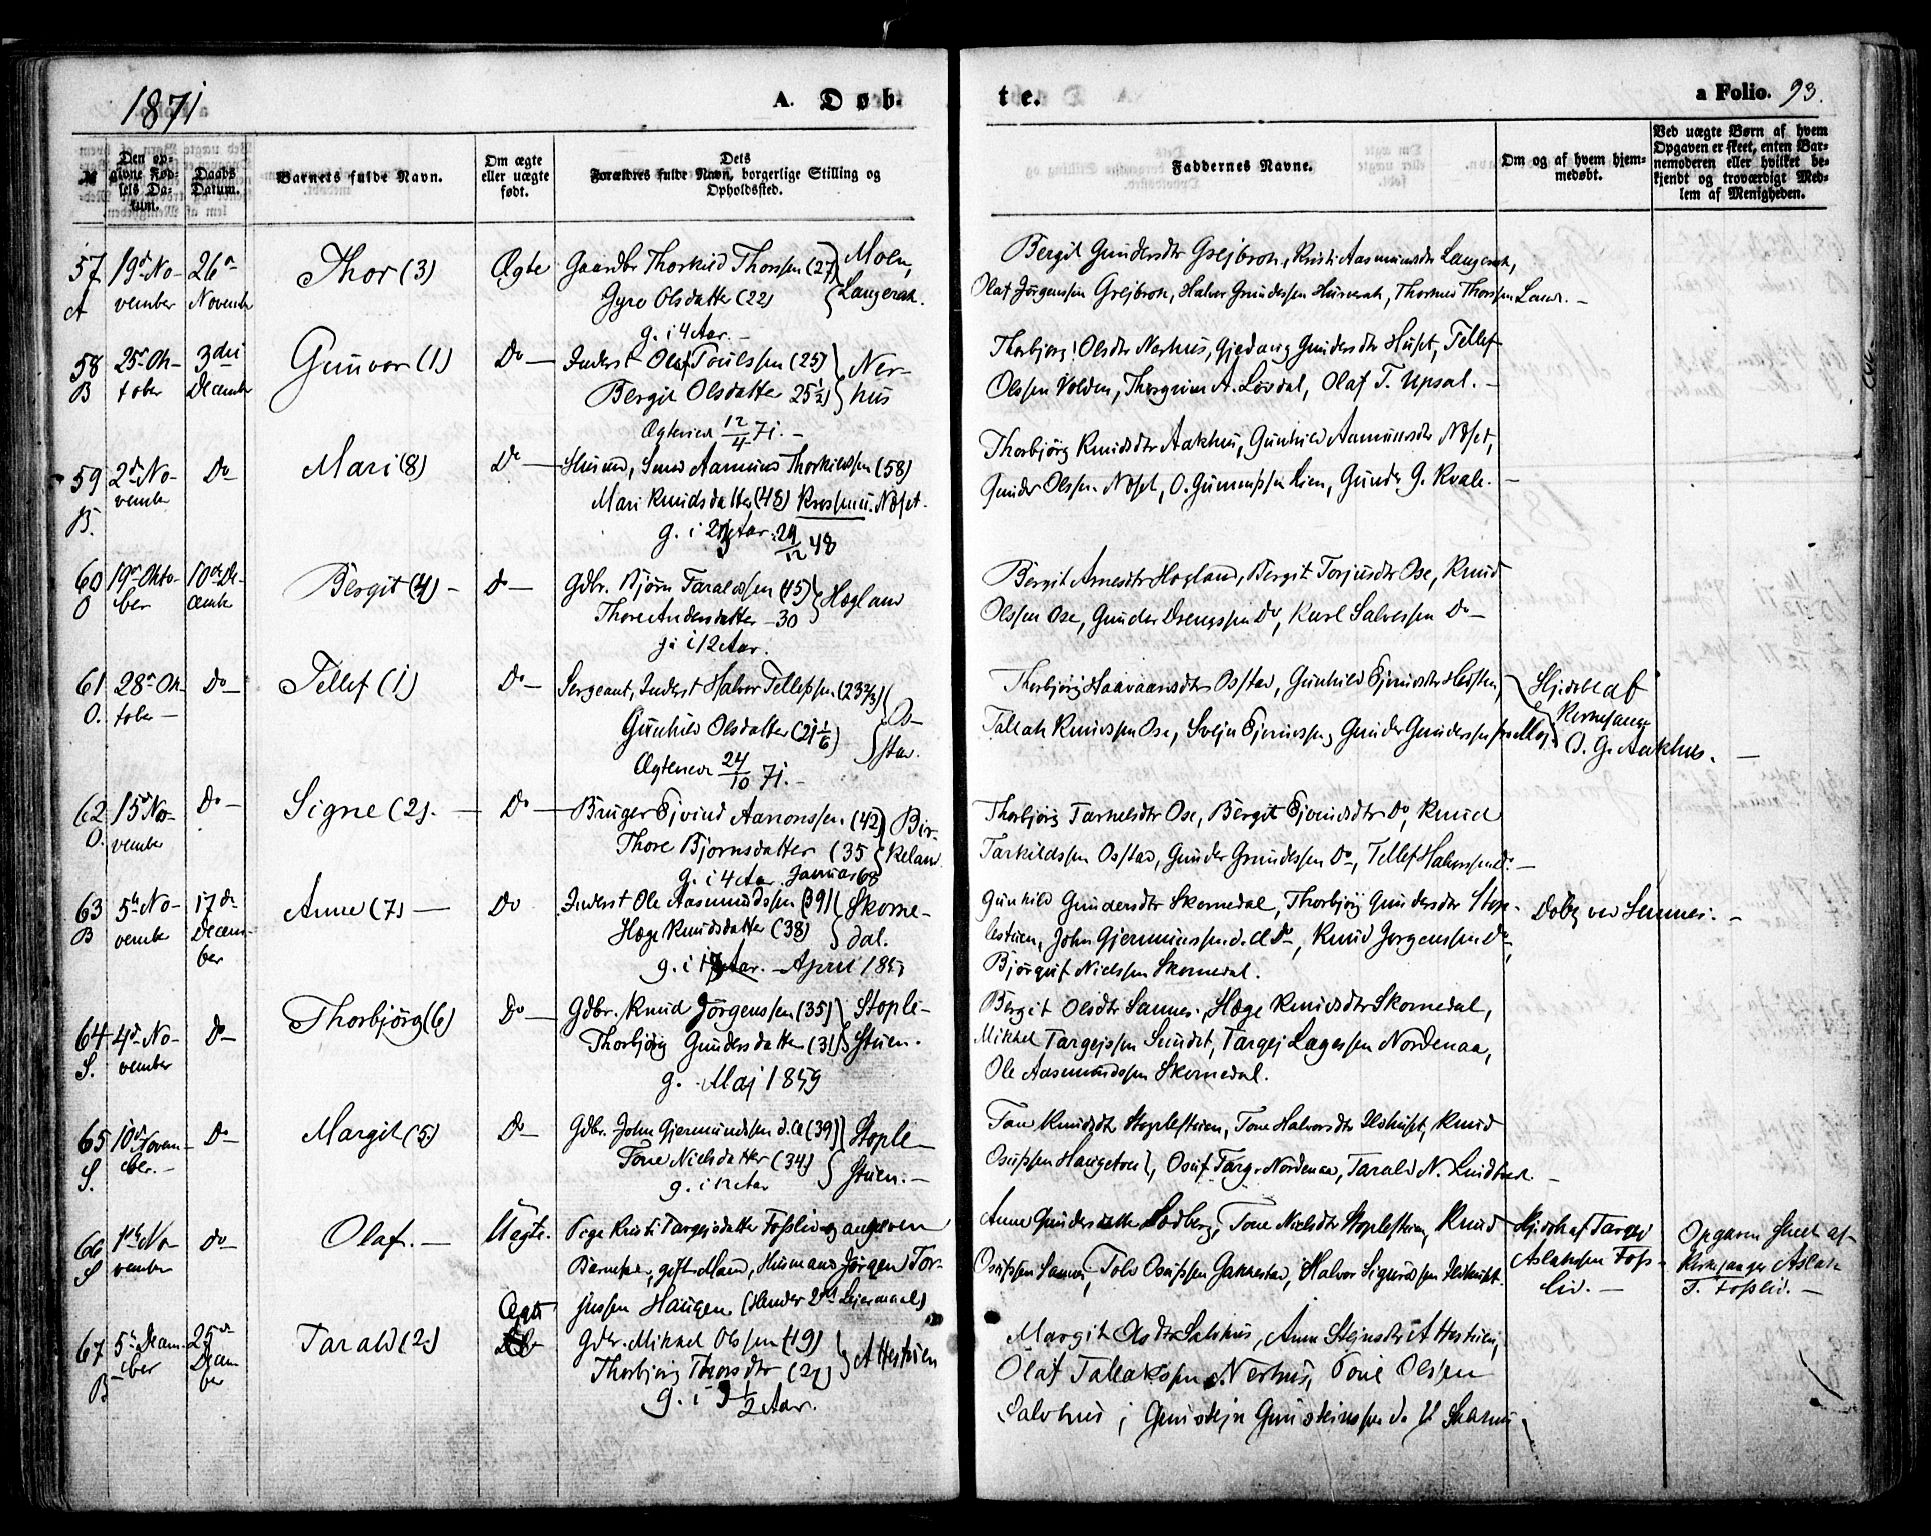 1871
A. Døb-
te.
a Folio. 93.
№
Den opgivne Fødsels Datum.
Daabs Datum.
Barnets fulde Navn.
Om ægte eller uægte født.
Dets Forældres fulde Navn, borgerlige Stilling og Opholdssted.
Faddernes Navne.
Om og af hvem hjemmedøbt.
Ved uægte Børn af hvem Opgaven er skeet, enten Barnemoderen eller hvilket bekjendt og troværdigt Medlem af Menigheden.
57 A
19de November
26de November
Thor (3)
Ægte
Gaardbr Thorkild Thorssen (27) Moen,
Gyro Olsdatter (22) Langerak.
g. i 4 Aar. —
Bergit Gundersdtr Grejbrok, Kristi Aasmundsdtr Langerak,
Olaf Jørgenssen Grejbrok, Halvor Gunderssen Huserak, Thorkild Thorssen
58 B
25de Oktober
3die December
Gunvor (1)
Do —
Inderst Olaf Toulssen (25) Ner-
Bergit Olsdatter 25½ hus
Ægteviet 12/4 71. —
Thorbjørg Olsdtr Nerhus, Gjedang Gundersdtr Huset, Tellef
Olssen Volden, Thorgrim A. Løvdal, Olaf T. Upsal. —
59 B.
2de November
Do
Mari (8)
Do —
Husmd, Smed Aamund Thorkildssen (58)
Mari Knudsdatter (48) Næset.
g. i 23 Aar. 29/12 48
Thorbjørg Knudsdtr Aakhus, Gunhild Aamundsdtr Næset,
Gunder Olssen Næset, O. Lien, Gunder G. Kvale. —
60 O
19de Oktober
10de December
Bergit (4) —
Do —
Gdbr. Bjørn Taraldssen (45) Hægland
Thore Andersdatter — 30
g. i 12 Aar.
Bergit Arnesdtr Hægland, Bergit Torjusdtr Ose, Knud
Olssen Ose, Gunder Drengssen Do, Karl Salvessen Do —
61 O.
28de Oktober —
Do —
Tellef (1)
Do —
Sergeant, Inderst Halvor Tellefssen (23⅔) Os-
Gunhild Olsdatter (21⅙) stad.
Ægteviet 24/10 71. —
Thorbjørg Haavaarsdtr Osstad, Gunhild Ejvindsdtr
Tallak Knudssen Ose, Svejn Ejvindssen, Gunder Gunderssen
Hjdøbt af
Kirkesanger
O. G. Aakhus. —
62 O.
15de November
Do —
Signe (2). —
Do —
Bruger Ejvind Aanonssen (42) Bir-
Thore Bjørnsdatter (35 keland
g. i 4 Aar. Januar 68
Thorbjørg Tarkelsdtr Ose, Bergit Ejvindsdtr Do, Knud
Tarkildssen Osstad, Gunder Gunderssen Do, Tellef Halvorssen Do —
63 B
5te November
17de December
Anne (7) —
Do
Inderst Ole Aasmundssen (39) Skorne-
Hæge Knudsdatter (38) dal.
g. i Aar. — April 185
Gunhild Gundersdtr Skornedal, Thorbjørg Gundersdtr Stop-
lestuen, John Gjermundssen d. Æ Do, Knud Jørgenssen Do,
Bjørguf Nielssen Skornedal.
Døbt ved Sannes. —
64 S.
4de November
Do
Thorbjørg (6)
Do —
Gdbr. Knud Jørgenssen (35) Stople-
Thorbjørg Gundersdatter (31) stuen.
g. Maj 1859
Bergit Olsdtr Sannes, Hæge Knudsdtr Skornedal,
Mikkel Targejssen Sundet, Targej Lagessen Nordenaa,
Ole Aasmundssen Skornedal.
65 S.
10de November. —
Do —
Margit (5)
Do —
Gdbr. John Gjermundssen d. Æ (39) Stople-
Tone Nielsdatter (34) stuen. —
g. i 12 Aar
Tone Knudsdtr Stoplestuen, Tone Halvorsdtr, Knud
Osufssen Haugetvet, Osuf Targ. Nordenaa, Tarald N. —
66 S
1ste November
Do —
Olaf. —
Uægte.
Pige Kristi Targejsdatter Fosliv og angiven
Barnefar, gift Mand, Husmand Jørgen Tor-
jussen Haugen (Hendes 2det Lejermaal)
Anne Gundersdatter, Tone Nielsdtr Stoplestuen, Knud
Osufssen Sannes, Tolv Osufssen Gakkestad, Halvor Sigurdssen
Hjdøbt af Targej
Aslakssen Fos-
liv. —
Opgaven skeet af
Kirkesanger Aslak
T. Fosliv. —
67 B
5te December
25de December
Tarald (2)
Ægte
Gdbr. Mikkel Olssen (49) Attestuen
Thorbjørg Thorsdtr (27)
g. i 9½ Aar.
Margit Olsdtr Salvhus, Anne Stejnsdtr Attestuen,
Olaf Tallakssen Nerhus, Toul Olssen
Salvhus, Gunstejn Gunstejnssen d. Y